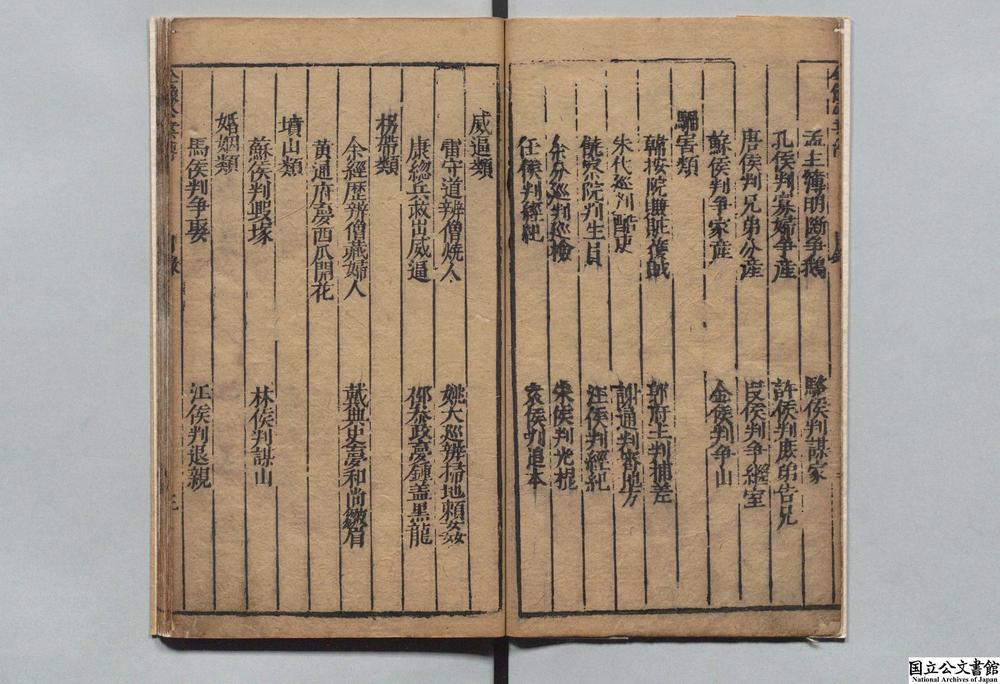 孟主簿明斷争鵝
駱侯判謀家
孔侯判寡婦争産
許侯判庶弟告兄
唐侯判兄弟分産
段侯判争繼室
蘇侯判争家産
金侯判争山
騙害類
韓按院賺贓獲賊
郭府主判捕差
朱代巡判酷吏
謝通判審地方
饒察院判生員
汪侯判經紀
余分巡判巡檢
朱侯判光棍
任侯判經紀
袁侯判追本
威逼類
雷守道辨僧燒人
姚大巡辨掃地頼姦
康總兵救出威逼
邴参政夢鍾蓋黒龍
拐帶類
余經歷辨僧藏婦人
戴典史夢和尚皺眉
黄通府夢西瓜開花
墳山類
蘇侯判毁塚
林侯判謀山
婚姻類
馬侯判争娶
江侯判退親
目録
国立公文書館
National Archives of Japan